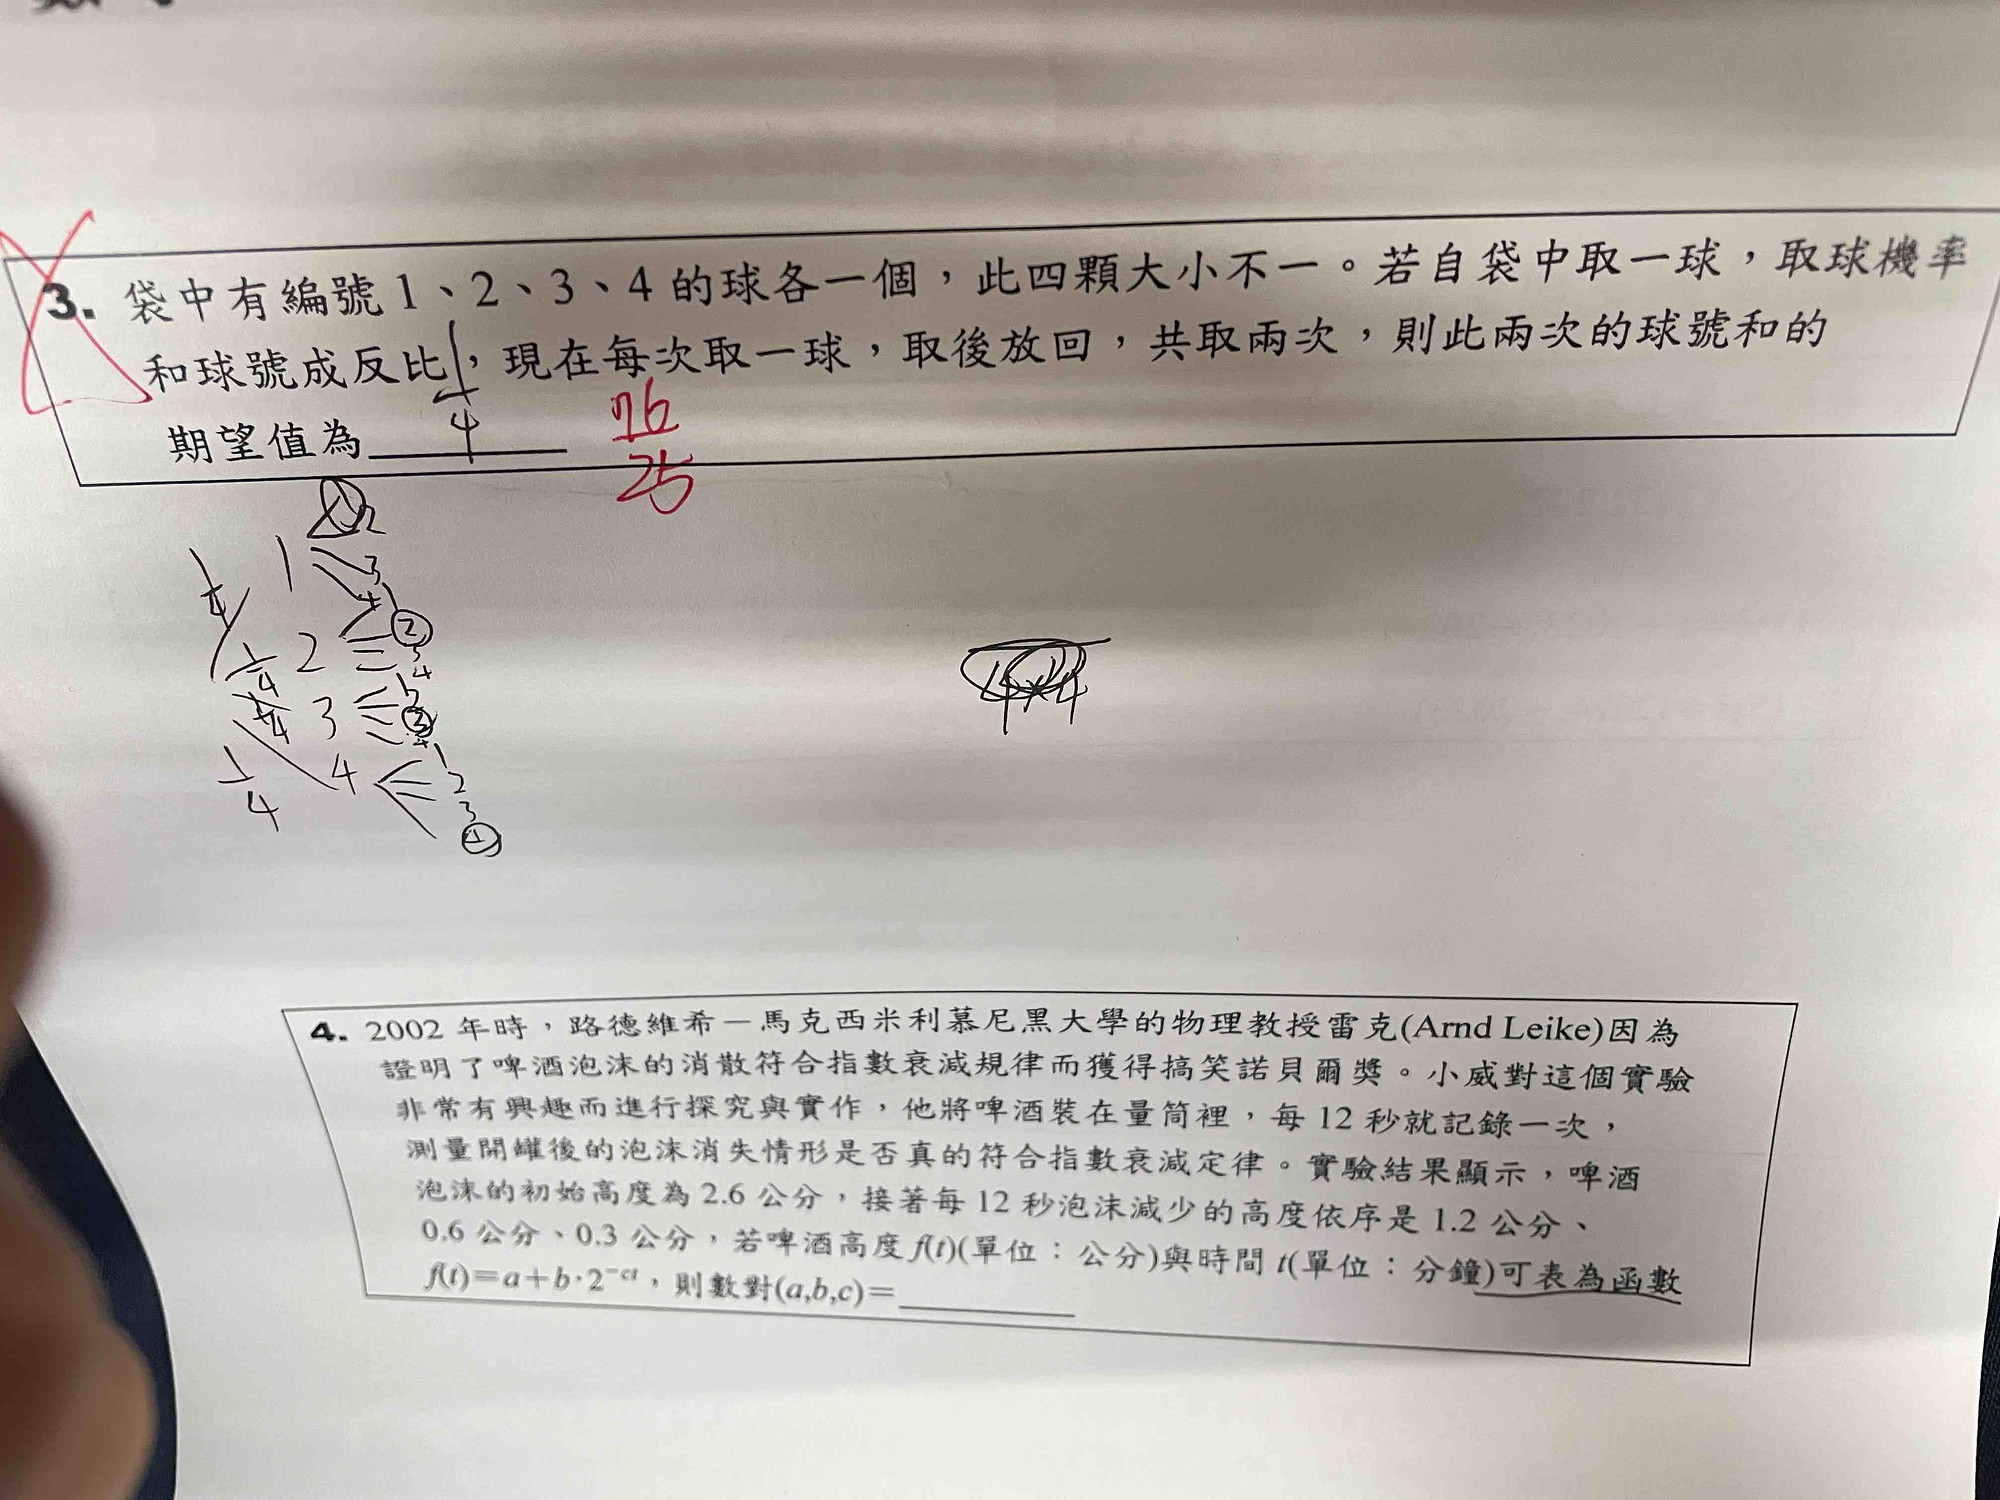 3. 袋中有編號 1、2、3、4 的球各一個，此四顆大小不一。若自袋中取一球，取球機率
和球號成反比，現在每次取一球，取後放回，共取兩次，則此兩次的球號和的
期望值為
1
4
25
1
2
3
4
1
2
3
4
1
4
1
4
1
4
4×4
4. 2002 年時，路德維希－馬克西米利慕尼黑大學的物理教授雷克(Arnd Leike)因為
證明了啤酒泡沫的消散符合指數衰減規律而獲得搞笑諾貝爾獎。小威對這個實驗
非常有興趣而進行探究與實作，他將啤酒裝在量筒裡，每 12 秒就記錄一次，
測量開罐後的泡沫消失情形是否真的符合指數衰減定律。實驗結果顯示，啤酒
泡沫的初始高度為 2.6 公分，接著每 12 秒泡沫減少的高度依序是 1.2 公分、
0.6 公分、0.3 公分，若啤酒高度 f(t)(單位：公分)與時間 t(單位：分鐘)可表為函數
f(t)=a+b·2^{-ct}，則數對(a,b,c)=